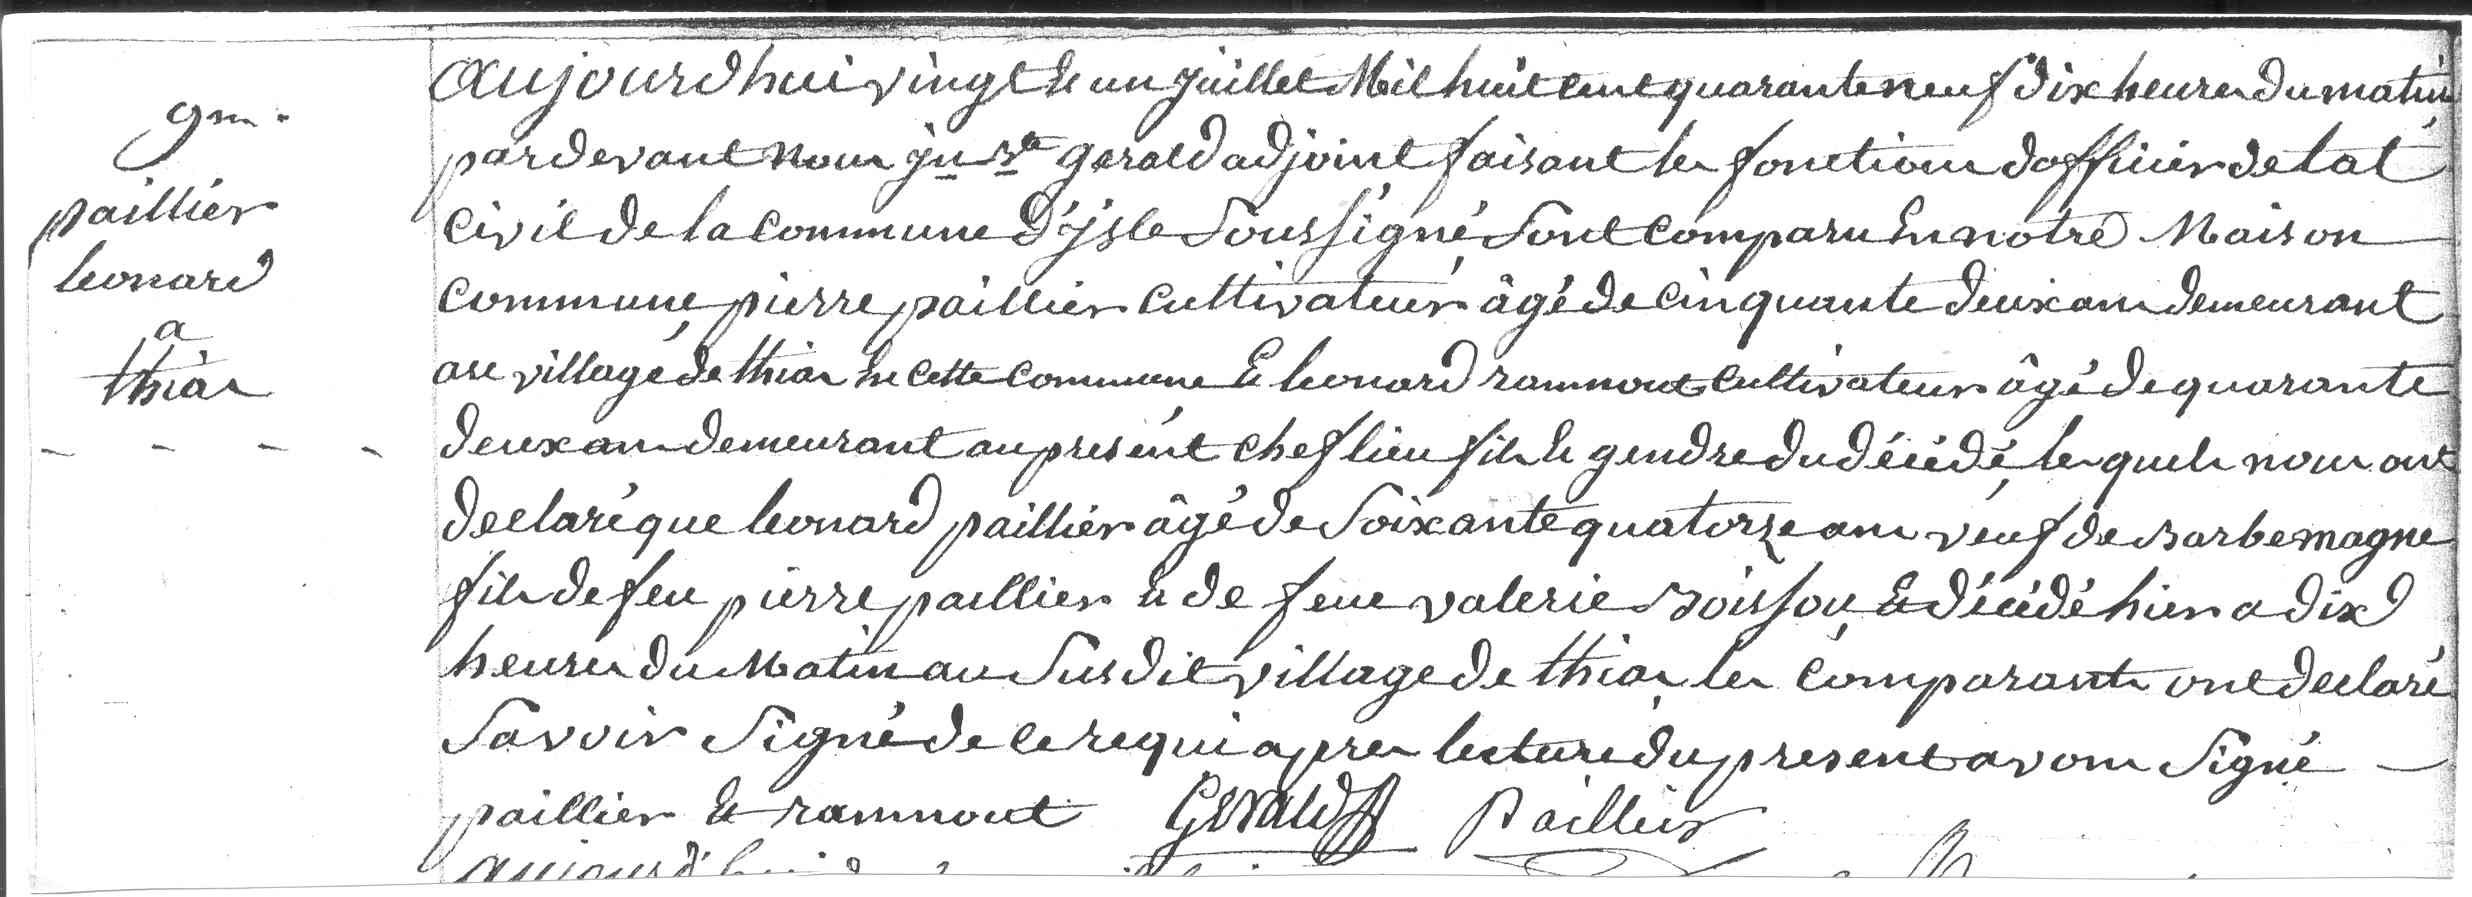 9m.
paillier
leonard
a
thias
aujourdhui vingt et un juillet Mil huit cent quarante neuf dix heures du matin
par devant nous jn Bte gerald adjoint faisant les fonctions dofficier de lat
civil de la commune d'ysle Soussigné Sont comparu En notre Maison
commune pierre paillier cultivateur âgé de cinquante deux ans demeurant
au village de thias En cette commune Et leonard ramnout cultivateur âgé de quarante
deux ans demeurant au present chef lieu fils Et gendre du décédé, les quels nous ont
declaré que leonard paillier âgé de Soixante quatorze ans veuf de Barbe magne
fils de feu pierre paillier Et de feue valerie Boissou, Et décédé hier a dix
heures du Matin au Susdit village de thias les comparants ont declaré
Savoir Signé de ce requi apres lecture du present avons Signé
paillier Et ramnout Gerald Paillier
aujourd'hui